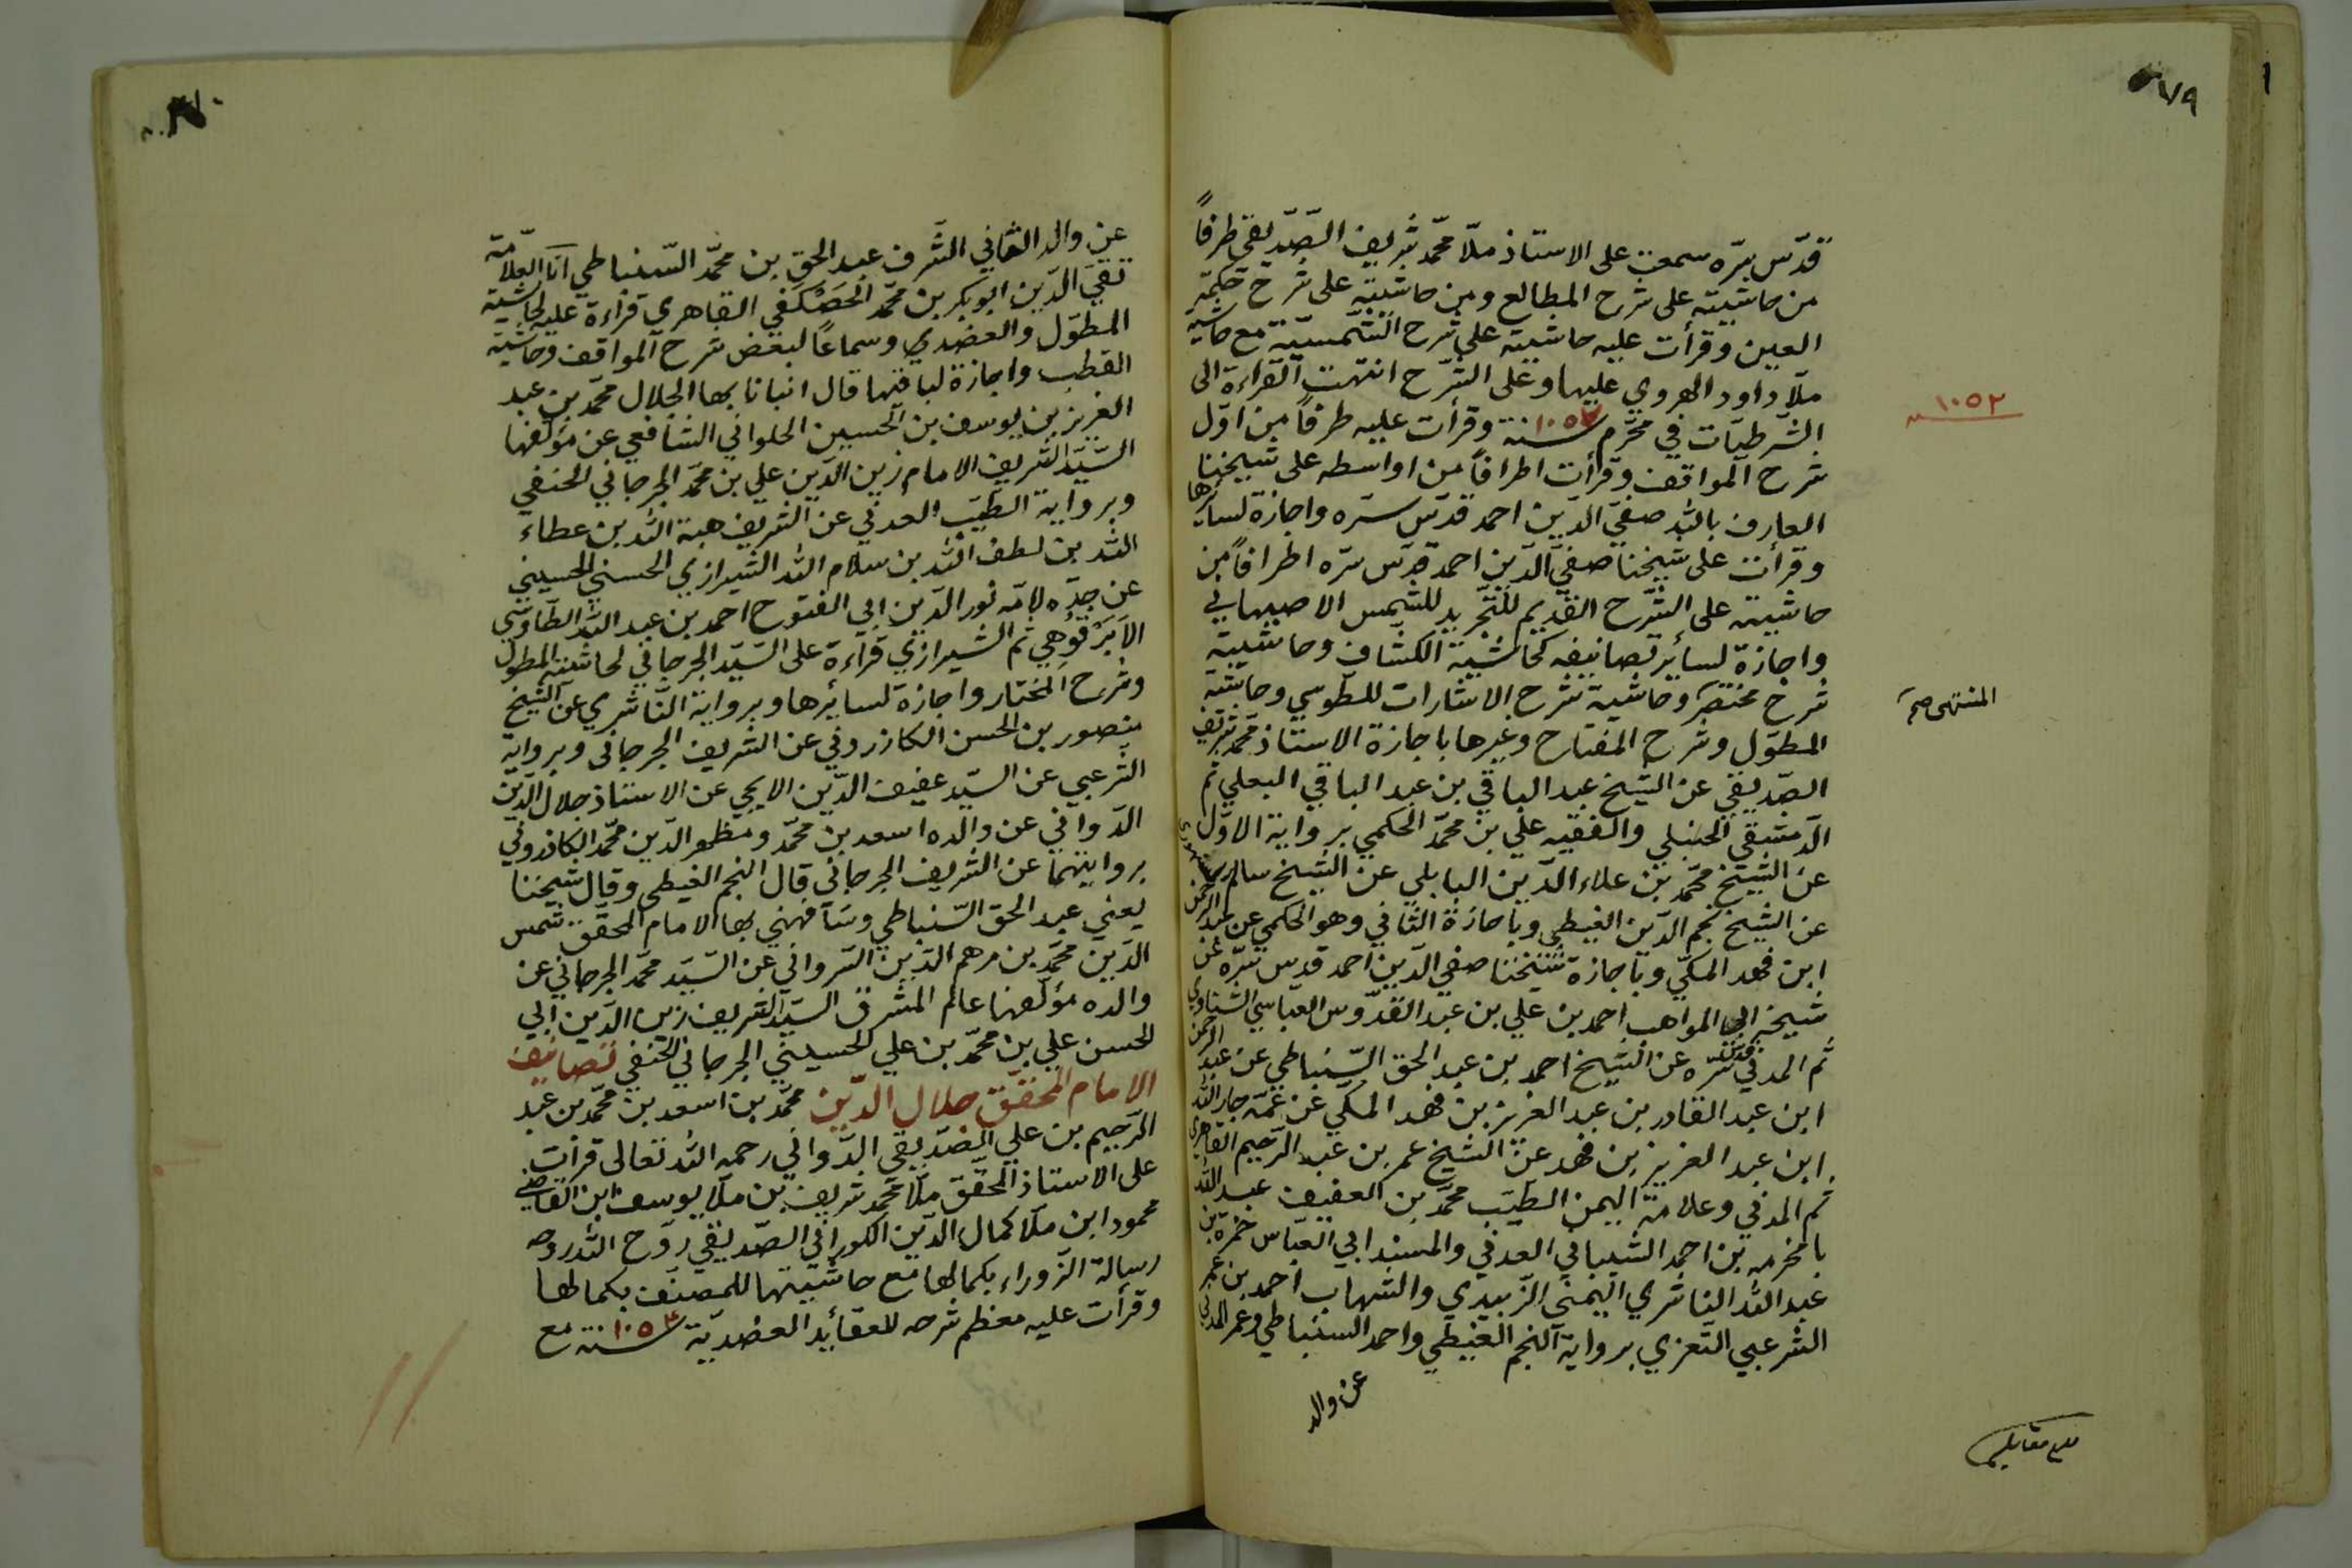 قدّس سرّه سمعت على الاستاذ ملّا محمّد شريف الصّدّيقي طرفاً
من حاشيته على شرح المطالع ومن حاشيته على شرح حكمة
العين وقرأت عليه حاشيته على شرح الشّمسيّة مع حاشية
ملّا داود الهروي عليها وعلى الشّرح انتهت القراءة الى
الشّرطيّات في محرّم سنة ١٠٥٢ وقرأت عليه طرفاً من اوّل
شرح المواقف وقرأت اطرافاً من اواسطه على شيخنا
العارف بالله صفيّ الدّين احمد قدّس سرّه واجازة لسائرها
وقرأت على شيخنا صفيّ الدّين احمد قدّس سرّه اطرافاً من
حاشيته على الشّرح القديم للتّجريد للشّمس الاصبهاني
واجازة لسائر تصانيفه كحاشية الكشّاف وحاشيته
شرح مختصر وحاشية شرح الاشارات للطّوسي وحاشية
المطوّل وشرح المفتاح وغيرها باجازة الاستاذ محمّد شريف
الصّدّيقي عن الشّيخ عبد الباقي بن عبد الباقي البعلي ثم
الدّمشقي الحنبلي والفقيه علي بن محمّد الحكمي برواية الاوّل
عن الشّيخ محمّد بن علاء الدّين البابلي عن الشّيخ سالم السنهوري
عن الشّيخ نجم الدّين الغيطي وباجازة الثّاني وهو الحكمي عن عبد الرحمن
ابن فهد المكّي وباجازة شيخنا صفي الدّين احمد قدّس سرّه عن
شيخه ابي المواهب احمد بن علي بن عبد القدّوس العبّاسي الشناوي
ثم المدني قدّس سرّه عن الشّيخ احمد بن عبد الحق السّنباطي عن عبد الرحمن
ابن عبد القادر بن عبد العزيز بن فهد المكّي عن عمّه جار الله
ابن عبد العزيز بن فهد عن الشيخ عمر بن عبد الرّحيم القاهري
ثم المدني وعلامة اليمن الطيّب محمّد بن العفيف عبد الله
بامخرمه بن احمد الشّيباني العدني والمسند ابي العبّاس حمزة بن
عبد الله الناشري اليمني الزّبيدي والشّهاب احمد بن عمر
الشّرعبي التّعزي برواية النّجم الغيطي واحمد السنباطي وعمر المدني
عن والد
١٠٥٢
المنتهى صح
بلغ مقابلة
عن والد الثّاني الشّرف عبد الحق بن محمّد السّنباطي انا العلّامة
تقيّ الدّين ابو بكر بن محمّد الحَصْكَفي القاهري قراءة عليه لحاشية
المطوّل والعضدي وسماعاً لبعض شرح المواقف وحاشية
القطب واجازة لباقيها قال انبانا بها الجلال محمّد بن عبد
العزيز بن يوسف بن الحسين الحلواني الشّافعي عن مؤلّفها
السّيّد الشّريف الامام زين الدّين علي بن محمّد الجرجاني الحنفي
وبرواية الطيّب العدني عن الشريف هبة الله بن عطاء
الله بن لطف الله بن سلام الله الشيرازي الحسني الحسيني
عن جدّه لامّه نور الدّين ابي الفتوح احمد بن عبد الله الطاوسي
الاَبَرْقُوهي ثم الشيرازي قراءة على السّيّد الجرجاني لحاشية المطول
وشرح المختار واجازة لسائرها وبرواية النّاشري عن الشّيخ
منصور بن الحسن الكازروني عن الشّريف الجرجاني وبرواية
الشّرعبي عن السيّد عفيف الدّين الايجي عن الاستاذ جلال الدّين
الدّواني عن والده اسعد بن محمّد ومظهر الدّين محمّد الكازروني
بروايتهما عن الشّريف الجرجاني قال النّجم الغيطي وقال شيخنا
يعني عبد الحق السّنباطي وشافهني بها الامام المحقّق شمس
الدّين محمّد بن مرهم الدّين الشرواني عن السّيّد محمّد الجرجاني عن
والده مؤلّفها عالم المشرق السّيّد الشّريف زين الدّين ابي
الحسن علي بن محمّد بن علي الحسيني الجرجاني الحنفي تصانيف
الامام المحقّق جلال الدّين محمّد بن اسعد بن محمّد بن عبد
الرّحيم بن علي الصّدّيقي الدّواني رحمه الله تعالى قرأت
على الاستاذ المحقّق ملّا محمّد شريف بن ملّا يوسف ابن القاضي
محمود ابن ملّا كمال الدّين الكوراني الصّدّيقي روّح الله روحه
رسالة الزّوراء بكمالها مع حاشيتها للمصنّف بكمالها
وقرأت عليه معظم شرحه للعقائد العضديّة سنة ١٠٥٢ مع